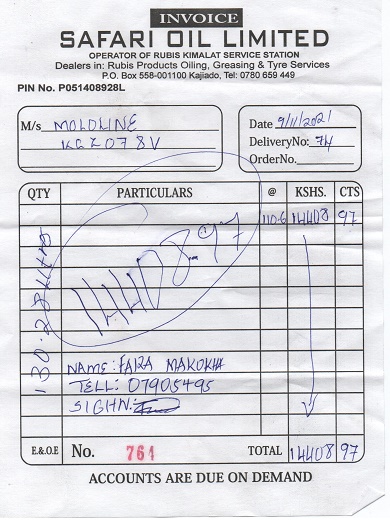 INVOICE
SAFARI OIL LIMITED
OPERATOR OF RUBIS KIMALAT SERVICE STATION
Dealers in: Rubis Products Oiling, Greasing & Tyre Services
P.O. Box 558-001100 Kajiado, Tel: 0780 659 449
PIN No. P051408928L
M/s MOLOLINE
Date 9/11/2021
DeliveryNo: 74
OrderNo.
QTY PARTICULARS @ KSHS. CTS
110.6 14408 97
14408.97
130.28
NAME: FAIZA MAKOKHA
TELL: 07905495
SIGHN:
E.&O.E No. 764 TOTAL 14408 97
ACCOUNTS ARE DUE ON DEMAND